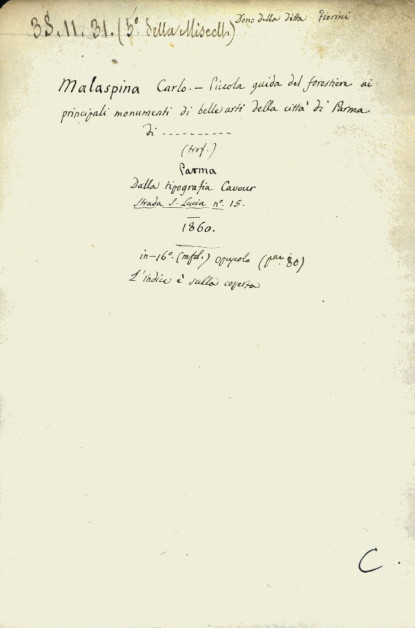 3S. 11. 31. (5º della Miscell.) Dono della ditta Fiorini
Malaspina Carlo. — Piccola guida del forestiere ai
principali monumenti di belle arti della città di Parma
di ----------
Parma
Dalla tipografia Cavour
Strada S. Lucia nº. 15.
1860.
in-16º. opuscolo 80)
L'indice è sulla coperta
C.